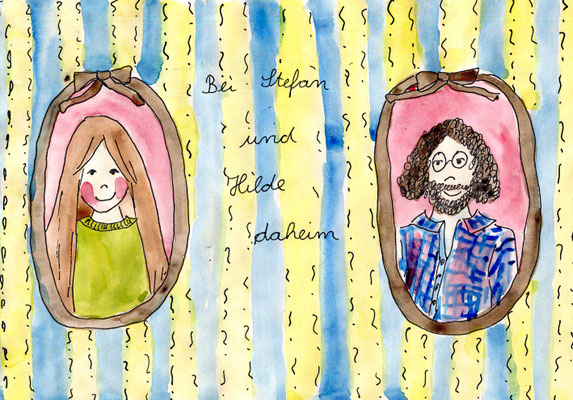 Bei Stefan
und
Hilde
daheim